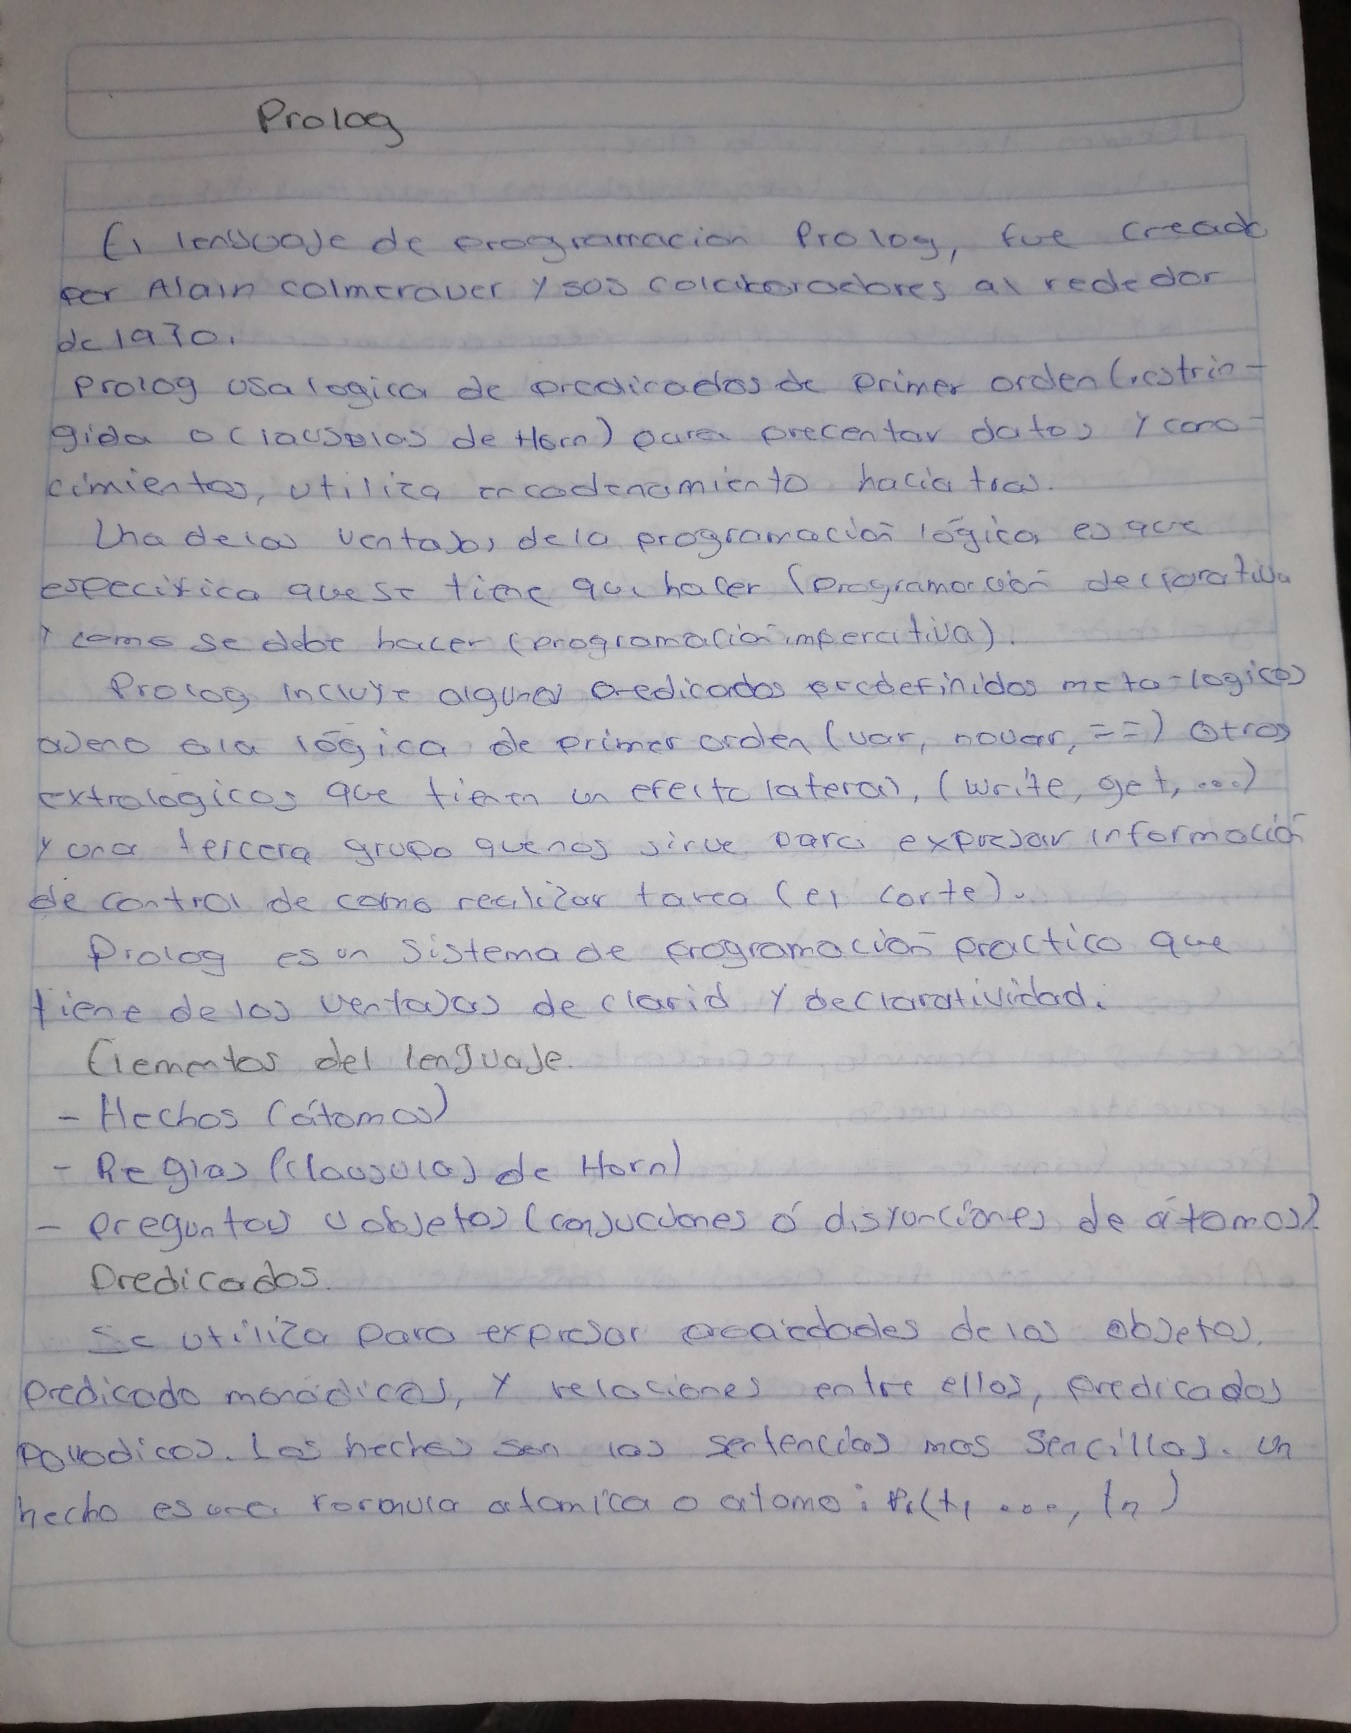 Prolog
El lenguaje de programacion Prolog, fue creado
por Alain colmerauer y sus colaboradores al rededor
de 1970.
Prolog usa logica de predicados de primer orden (restrin-
gida a clausulas de Horn) para precentar datos y cono-
cimientos, utiliza encadenamiento hacia tras.
Una de las ventajas de la programación lógica es que
especifica que se tiene que hacer (programación declarativa
y como se debe hacer (programación impercitiva).
Prolog incluye algunos predicados predefinidos meta-logicos
ajeno a la lógica de primer orden (var, novar, ==) otros
extralogicos que tienen un efecto lateral, (write, get, ...)
y una tercera grupo que nos sirve para expresar información
de control de como realizar tarea (el corte).
Prolog es un sistema de programación practico que
tiene de las ventajas de clarid y declaratividad.
Elementos del lenguaje.
- Hechos (átomos)
- Reglas (clausulas de Horn)
- preguntas u objetos (conjucciones ó disyunciones de átomos).
Predicados.
Se utiliza para expresar propiedades de los objetos,
predicado monádicos, y relaciones entre ellos, predicados
poliadicos. Los hechos son las sentencias mas sencillas. un
hecho es una formula atomica o atomo: (t1 ..., tn)